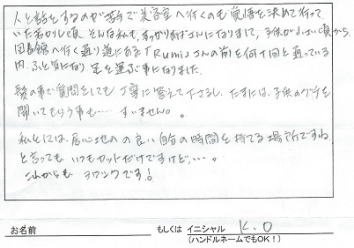 人と話をするのが苦手で美容室へ行くのも覚悟を決めて行って
いた若かりし頃、そんな私も、すっかりおばさんになりまして、子供が小さい頃から
図書館へ行く通り道にある「Rumiさんの前を何十回と通っている
内、ふと気になり足を運ぶ事になりました。
髪の事で質問をしても丁寧に答えて下さるし、たまには、子供のグチを
聞いてもらう事も…すいません。
私にとっては、居心地の良い自分の時間を持てる場所ですね
と言っても いつもカットだけですけど…。
これからも ヨロシクです!
お名前 もしくは イニシャル K.O
(ハンドルネームでもOK!)